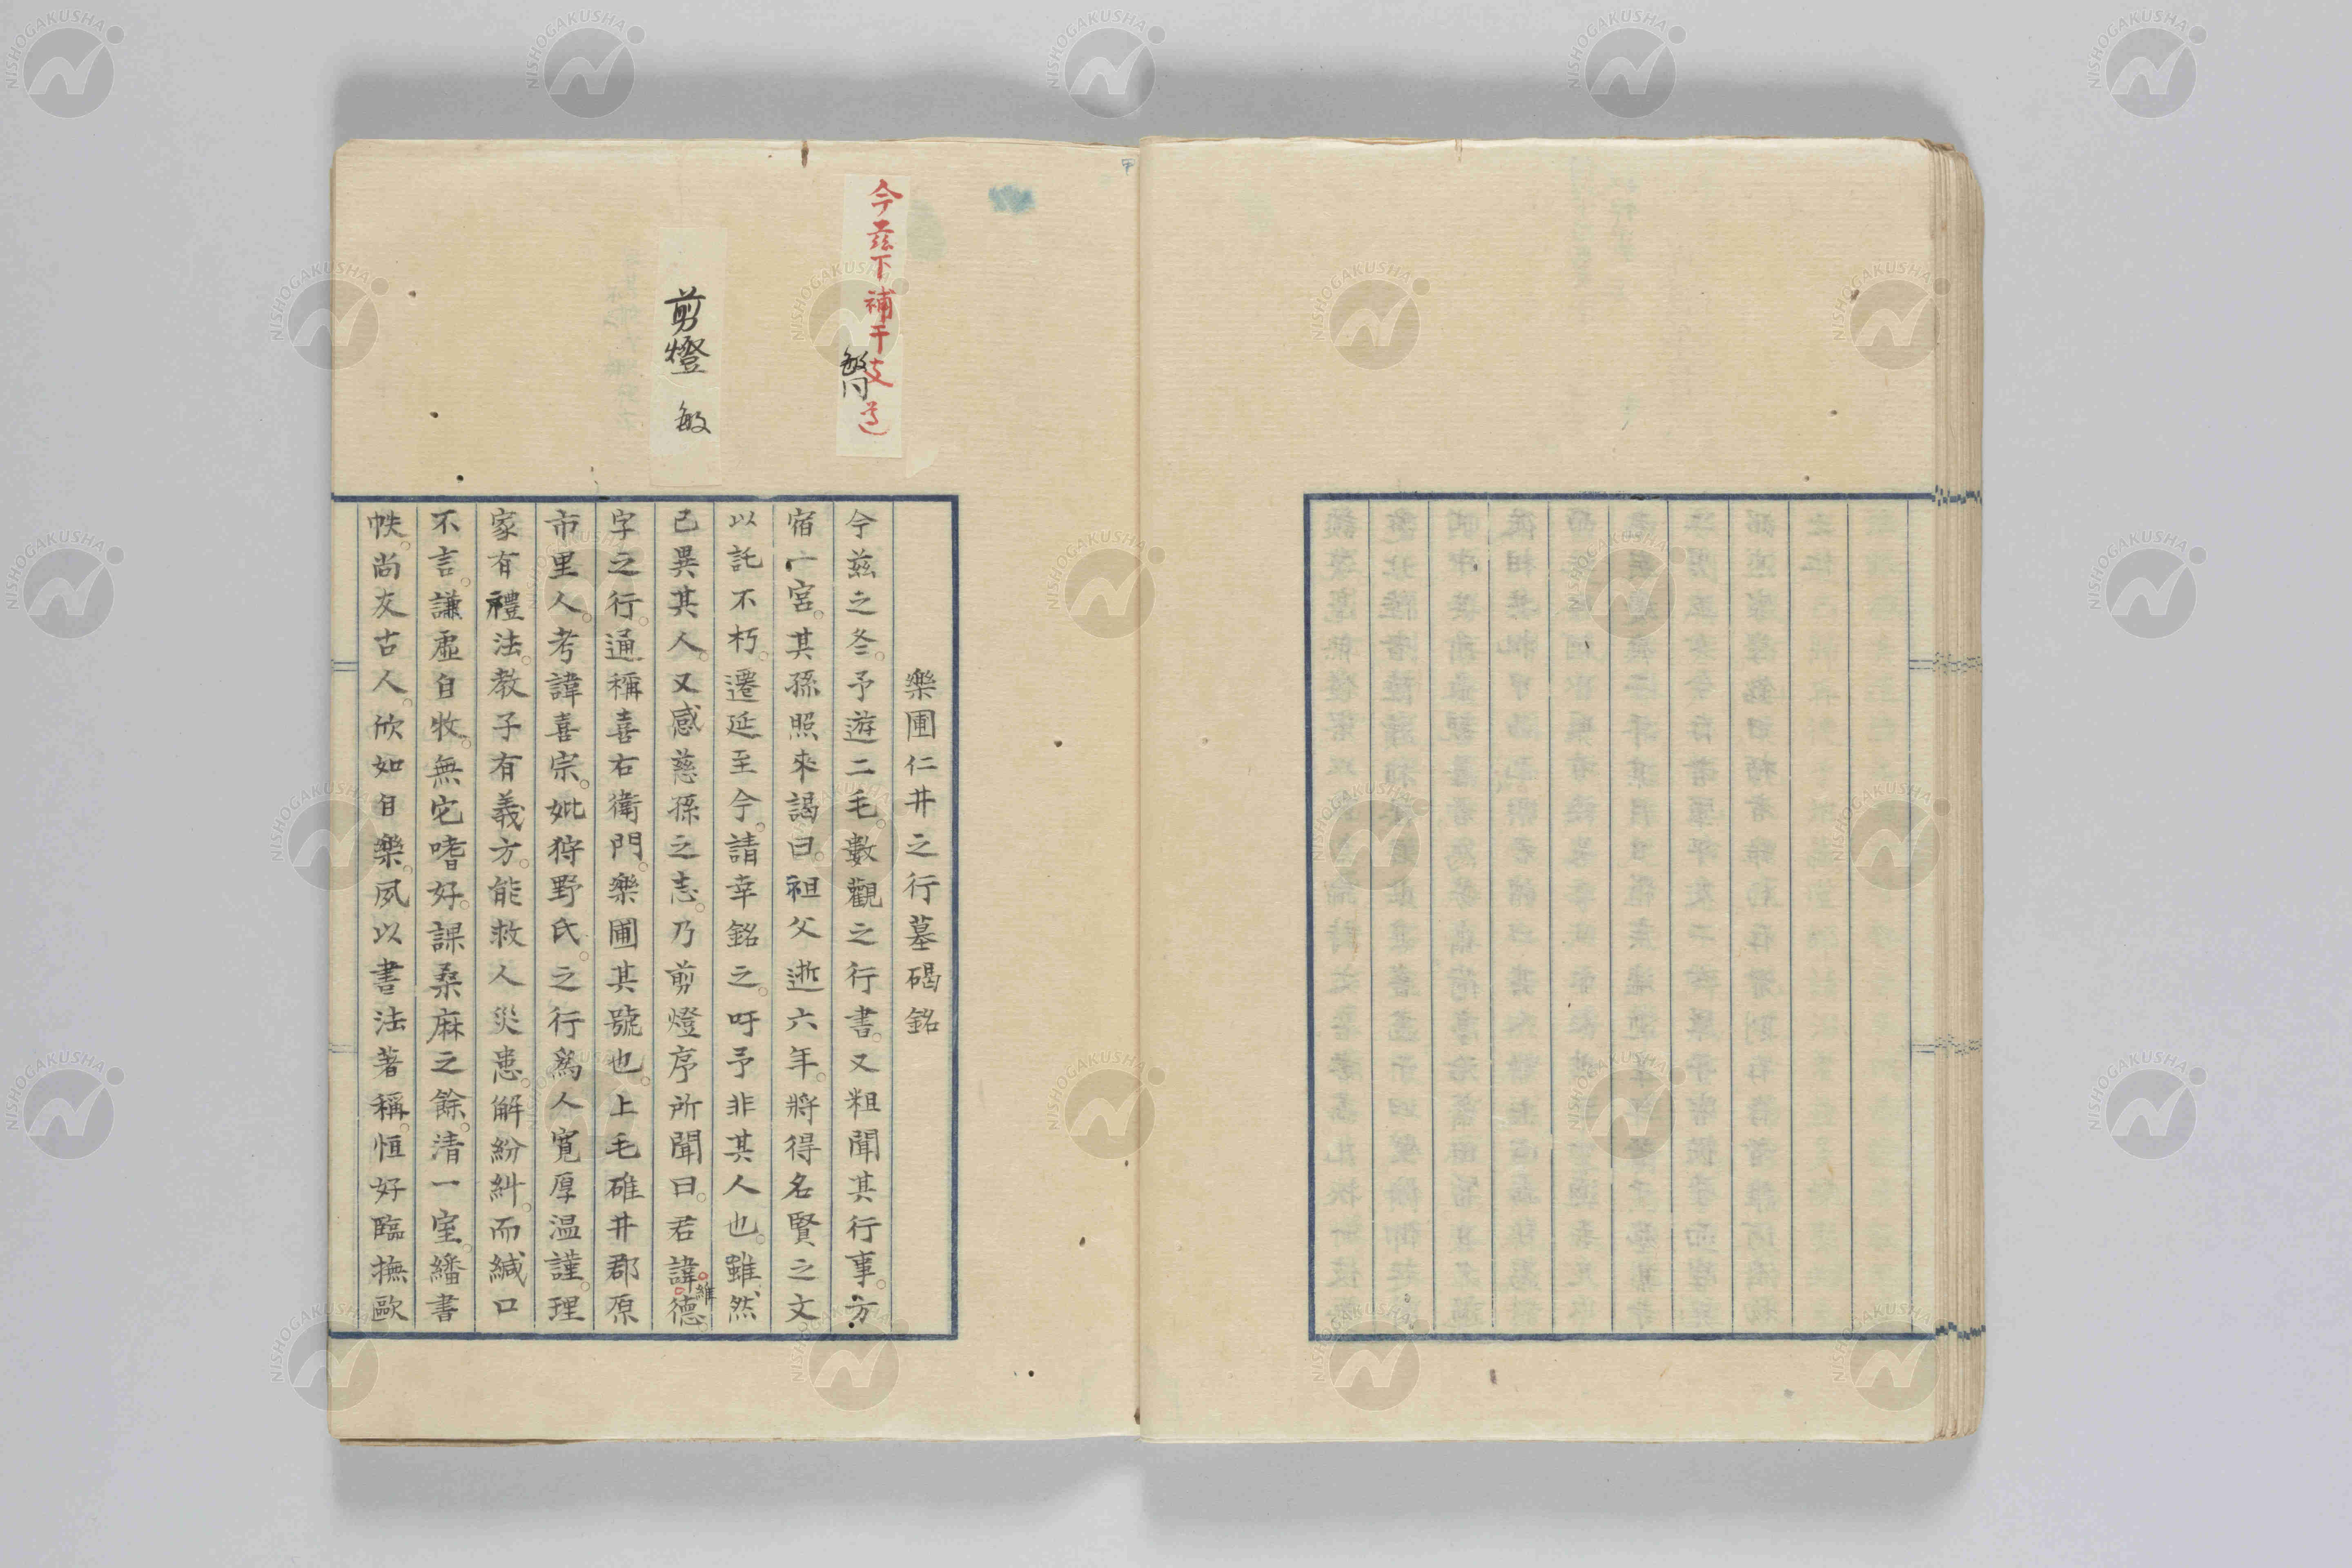 今茲下補干支
剪燈 敏
樂圃仁井之行墓碣銘
今茲之冬。予遊二毛。數觀之行書。又粗聞其行事。方
宿一宮。其孫照來謁曰。祖父逝六年。將得名賢之文
以託不朽。遷延至今。請幸銘之。吁予非其人也。雖然
已異其人。又感慈孫之志。乃剪燈序所聞曰。君諱維德。
字之行。通稱喜右衛門。樂圃其號也。上毛碓井郡原
市里人。考諱喜宗。妣狩野氏。之行爲人寬厚溫謹。理
家有禮法。教子有義方。能救人災患。解紛糾。而緘口
不言。謙虛自牧。無它嗜好。課桑麻之餘。清一室。繙書
帙。尚友古人。欣如自樂。夙以書法著稱。恒好臨撫歐
NISHOGAKUSHA